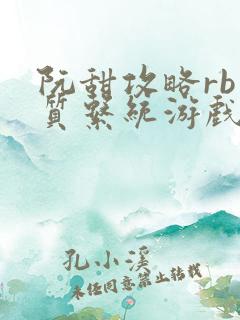 阮甜攻略rb
質系統游戲
孔小溪
未经同意禁止转载